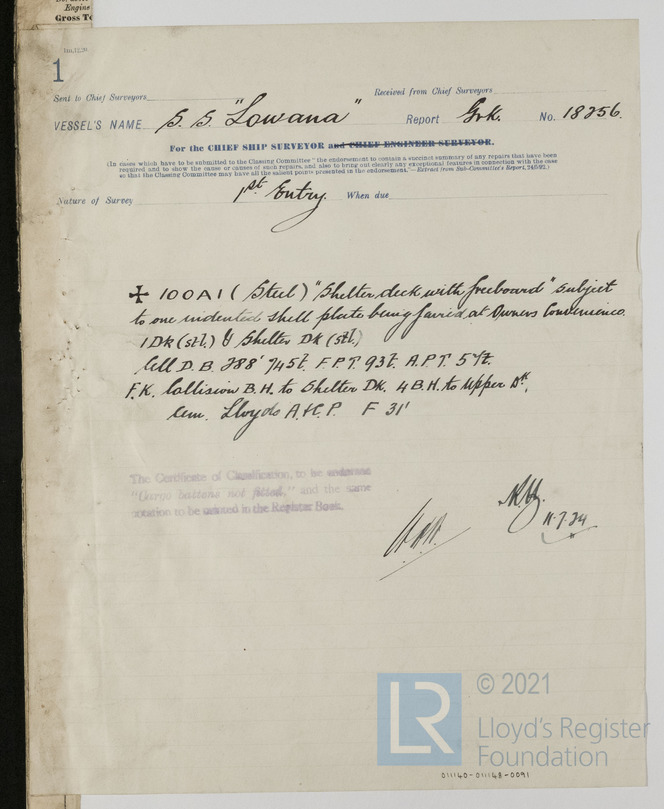 Engine
Gross To
1
Sent to Chief Surveyors
Received from Chief Surveyors
VESSEL'S NAME S. S. "Lowana" Report Grk. No. 18256.
For the CHIEF SHIP SURVEYOR and CHIEF ENGINEER SURVEYOR.
(In cases which have to be submitted to the Classing Committee "the endorsement to contain a succinct summary of any repairs that have been
required and to show the cause or causes of such repairs, and also to bring out clearly any exceptional features in connection with the case
so that the Classing Committee may have all the salient points presented in the endorsement."—Extract from Sub-Committee's Report,
Nature of Survey 1st Entry. When due
✠ 100A1 (Steel) "Shelter deck with freeboard" subject
to one indented shell plate being faired at Owners Convenience
1 Dk (stl.) & Shelter Dk (stl.)
Cell D.B. 288' 745t. F.P.T. 93t. A.P.T. 57t.
F.K. Collision B.H. to Shelter Dk. 4 B.H. to Upper Dk.
Cem. Lloyds A.&C.P. F 31'
The Certificate of Classification, to be endorsed
"Cargo battens not fitted," and the same
notation to be entered in the Register Book.
11.7.24
LR © 2021
Lloyd's Register
Foundation
011140-011148-0091